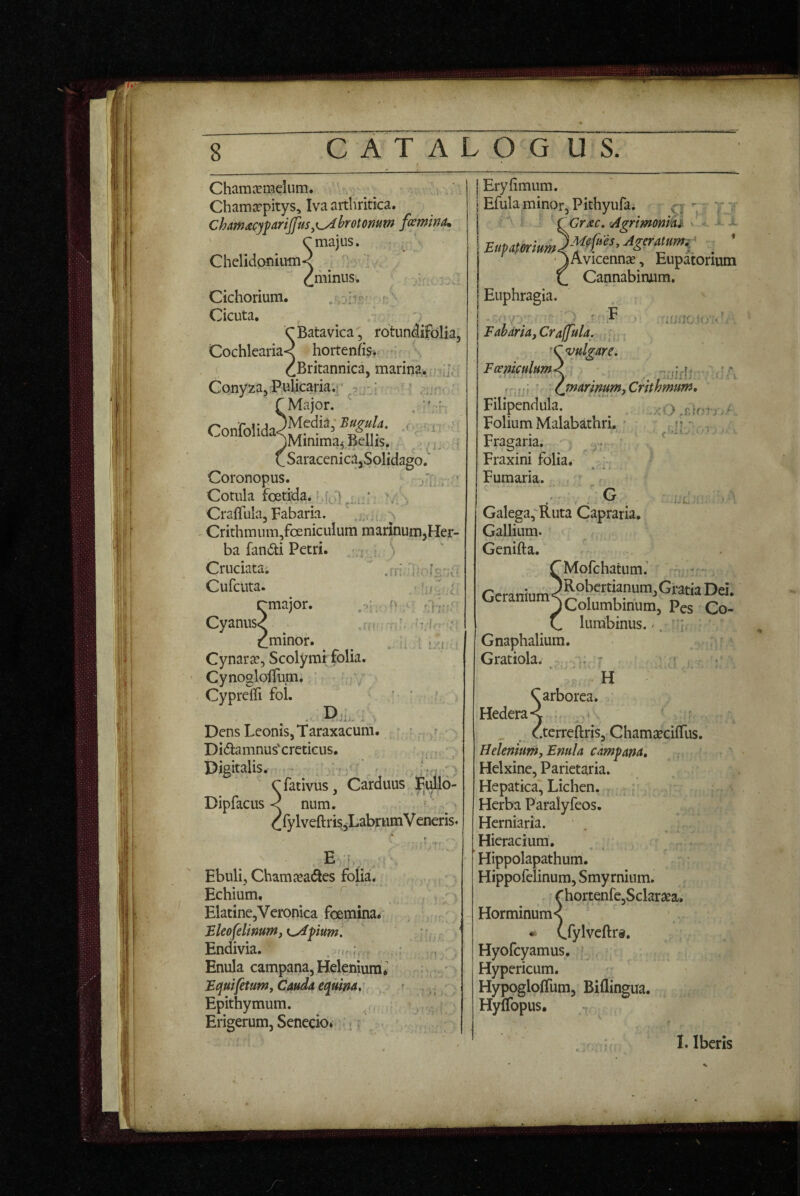 8 CATALOGUS.
Chamæmelum.
Chamæpitys, Iva arthritica.
Chamæcyparissus, Abrotonum fœmina.
Chelidonium
majus.
minus.
Cichorium.
Cicuta.
Cochlearia
Batavica, rotundifolia,
hortensis.
Britannica, marina.
Conyza, Pulicaria.
Consolida
Major.
Media, Bugula.
Minima, Bellis.
Saracenica, Solidago.
Coronopus.
Cotula fœtida.
Crassula, Fabaria.
Crithmum, fœniculum marinum, Her-
ba sancti Petri.
Cruciata.
Cuscuta.
Cyanus
major.
minor.
Cynaræ, Scolymi folia.
Cynoglossum.
Cypressi fol.
D
Dens Leonis, Taraxacum.
Dictamnus creticus.
Digitalis.
Dipsacus
sativus, Carduus Fullo-
num.
sylvestris, Labrum Veneris.
E
Ebuli, Chamæactes folia.
Echium.
Elatine, Veronica fœmina.
Eleoselinum, Apium.
Endivia.
Enula campana, Helenium.
Equisetum, Cauda equina.
Epithymum.
Erigerum, Senecio.
Erysimum.
Esula minor, Pithyusa.
Eupatorium
Græc. Agrimonia.
Mesues, Ageratum.
Avicennæ, Eupatorium
Cannabinum.
Euphragia.
F
Fabaria, Crassula.
Fœniculum
vulgare.
marinum, Crithmum.
Filipendula.
Folium Malabathri.
Fragaria.
Fraxini folia.
Fumaria.
G
Galega, Ruta Capraria.
Gallium.
Genista.
Geranium
Moschatum.
Robertianum, Gratia Dei.
Columbinum, Pes Co-
lumbinus.
Gnaphalium.
Gratiola.
H
Hedera
arborea.
terrestris, Chamæcissus.
Helenium, Enula campana.
Helxine, Parietaria.
Hepatica, Lichen.
Herba Paralyseos.
Herniaria.
Hieracium.
Hippolapathum.
Hipposelinum, Smyrnium.
Horminum
hortense, Sclaræa.
sylvestre.
Hyoscyamus.
Hypericum.
Hypoglossum, Bislingua.
Hyssopus.
I. Iberis